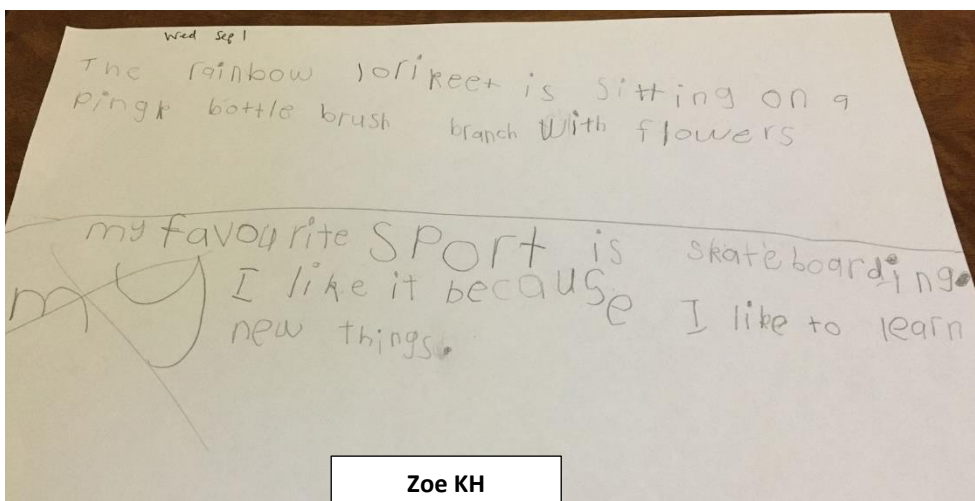 Wed Sep 1
The rainbow lorikeet is sitting on a
pingk bottle brush branch with flowers
my favourite SPort is skateboarding.
my
I like it because I like to learn
new things.
Zoe KH